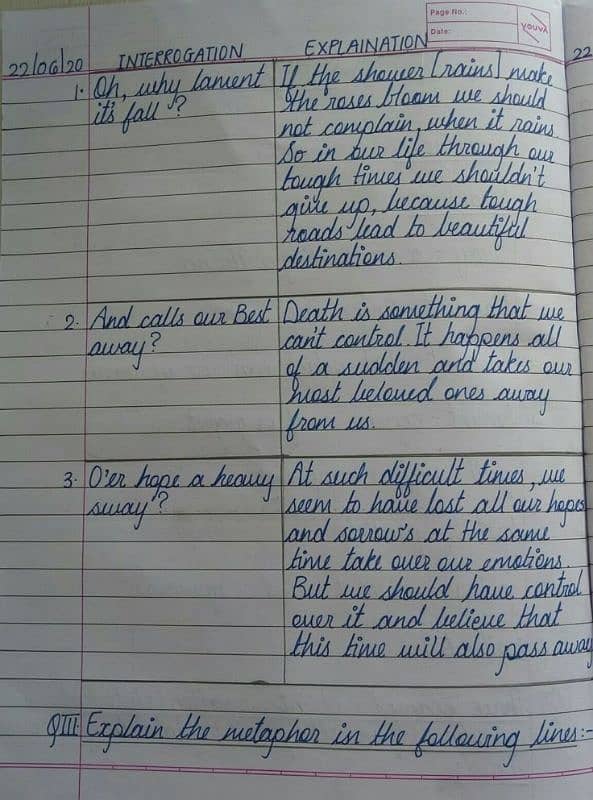 Page No.:
Date:
YOUVA
22/06/20
INTERROGATION
EXPLAINATION
22
1. Oh, why lament
it's fall ?
If the shower [rains] make
the roses bloom we should
not complain, when it rains.
So in our life through our
tough times we shouldn't
give up, because tough
roads lead to beautiful
destinations.
2. And calls our Best
away?
Death is something that we
can't control. It happens all
of a sudden and takes our
most beloved ones away
from us.
3. O'er hope a heavy
sway ?
At such difficult times, we
seem to have lost all our hopes
and sorrow's at the same
time take over our emotions.
But we should have control
over it and believe that
this time will also pass away
QIII Explain the metaphor in the following lines :-